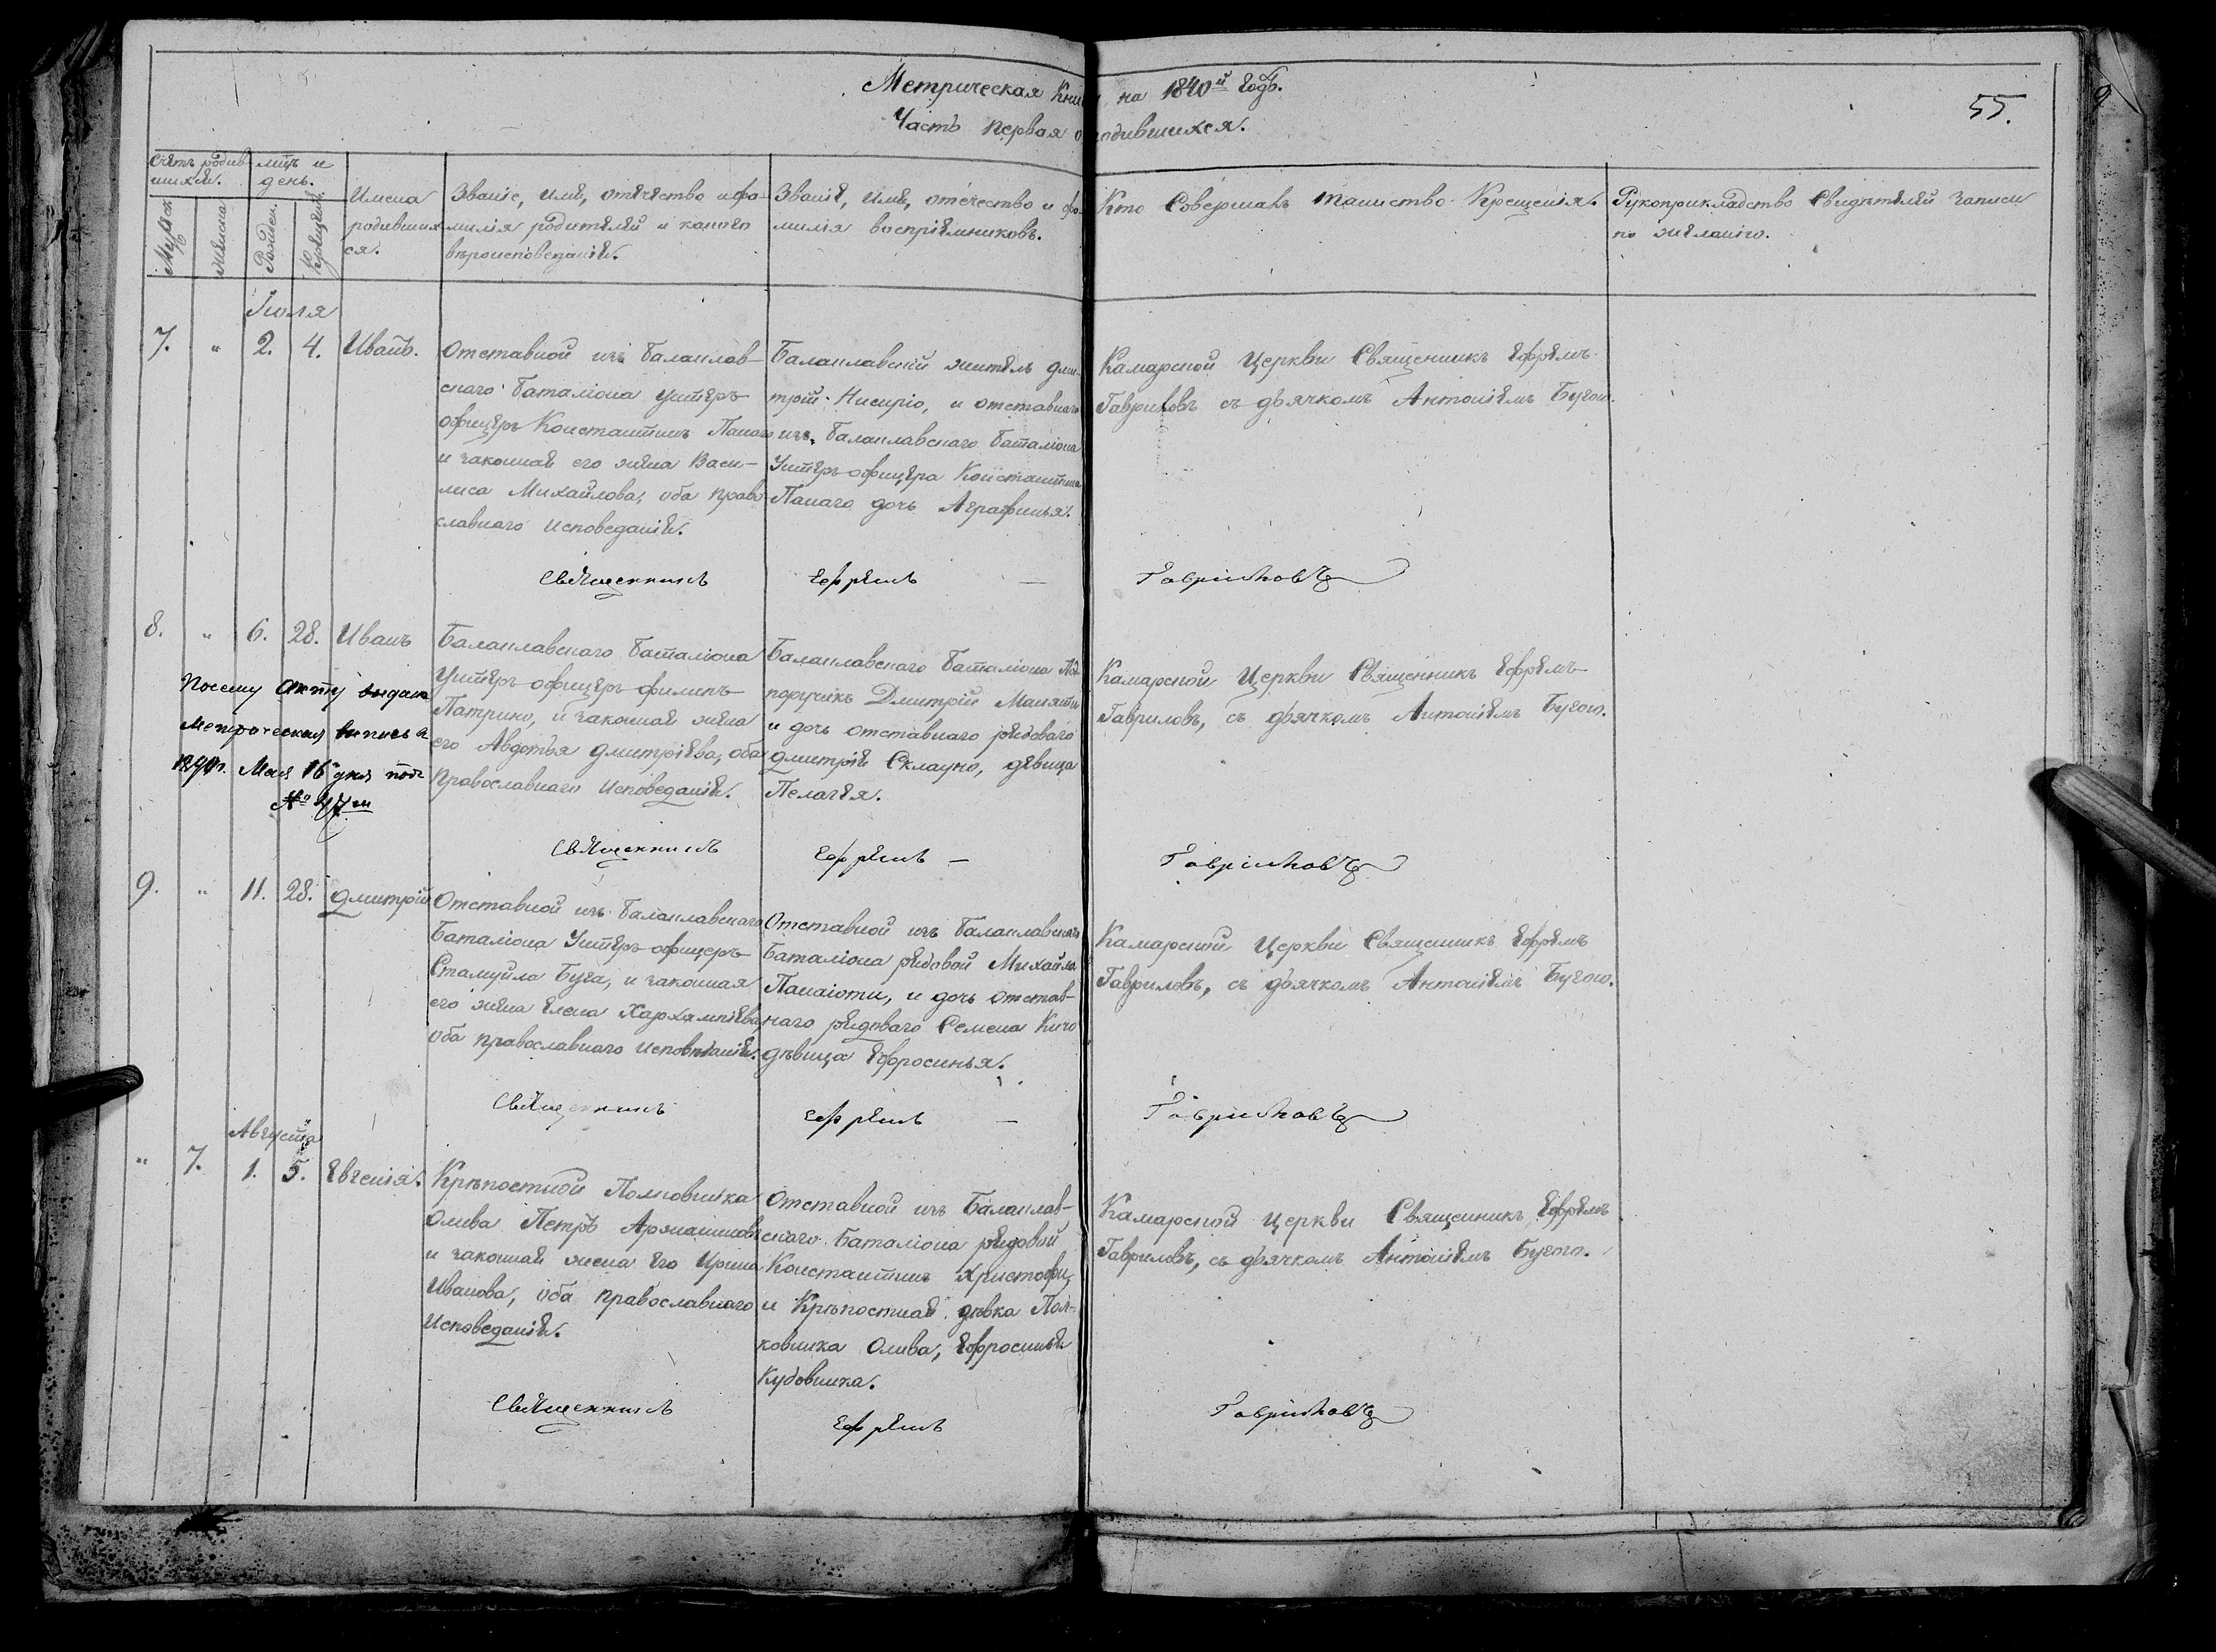 Метрическая Кни на 1840й Годъ.
Часть первая о родившихся.
55.
Счетъ родив-
шихся.
мѣсяцъ и
день.
Мужеск
Женска
Рожден.
Крещен.
Имена
родивших
ся.
Званіе, имя, отечество и фа-
милія родителей и какого
вѣроисповеданія.
Званіе, имя, отечество и фа-
милія воспріемниковъ.
Кто Совершалъ таинство Крещенія.
Рукоприкладство Свидѣтелей записи
по желанію.
Іюля
7. " 2. 4. Иванъ.
Отставной изъ Балаклав-
скаго Баталіона унтеръ
офицеръ Константинъ Панаго
и законная его жена Васи-
лиса Михайлова, оба право
славнаго Исповеданія.
Балаклавскій житель Дми-
трій Нисиріо, и отставнаго
изъ Балаклавскаго Баталіона
Унтеръ-офицера Константина
Панаго дочь Аграфинья.
Камарской Церкви Священникъ Ефремъ
Гавриловъ съ дьячкомъ Антоніемъ Бугою.
Священникъ Ефремъ — Гавриловъ
8. " 6. 28. Иванъ
Посему Акту выдана
Метрическая выпись
Мая 16 дня подъ
№ 47м
Балаклавскаго Баталіона
Унтеръ-офицеръ Филипъ
Патрико, и законная жена
его Авдотья Дмитріева, оба
Православнаго Исповеданія.
Балаклавскаго Баталіона Под-
поручикъ Дмитрій Маняти
и дочь отставнаго рядоваго
Дмитрія Склауно, дѣвица
Пелагея.
Камарской Церкви Священникъ Ефремъ
Гавриловъ, съ дьячкомъ Антоніемъ Бугою.
Священникъ Ефремъ — Гавриловъ
9. " 11. 28. Дмитрій
Отставной изъ Балаклавскаго
Баталіона Унтеръ-офицеръ
Стамуйла Буга, и законная
его жена Елена Хархалипіева,
оба православнаго Исповеданія.
Отставной изъ Балаклавскаго
Баталіона рядовой Михайла
Панаіоти, и дочь отстав-
наго рядоваго Семена Кичо
дѣвица Ефросинья.
Камарской Церкви Священникъ Ефремъ
Гавриловъ, съ дьячкомъ Антоніемъ Бугою.
Священникъ Ефремъ — Гавриловъ
Августа
" 7. 1. 5. Евгенія.
Крѣпостной Полковника
Олива Петръ
и законная жена Его Ирина
Иванова, оба православнаго
Исповеданія.
Отставной изъ Балаклав-
скаго Баталіона рядовой
Константинъ Христофи,
и Крѣпостная дѣвка Пол-
ковника Олива, Ефросинья
Кудовичка.
Камарской Церкви Священникъ Ефремъ
Гавриловъ, съ дьячкомъ Антоніемъ Бугою.
Священникъ Ефремъ Гавриловъ